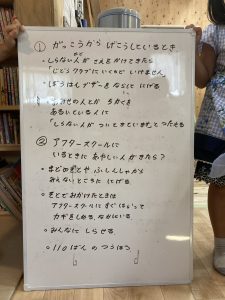 ① がっこうから げこうしているとき
・しらない人が こえを かけてきたら
「じどうクラブに いくので いけません」
・ぼうはんブザーを ならして にげる
の人とか ちかくを
あるいている人に
「しらない人が ついてきています」と つたえる
② アフタースクールに
いるときに あやしい人が きたら?
・まどのそとや ふしんしゃから
みえないところに にげる
・そとで おかけたときは
アフタースクールに すぐ はいって
カギをしめる、なかにいる
・みんなに しらせる
・110ばんの つうほう